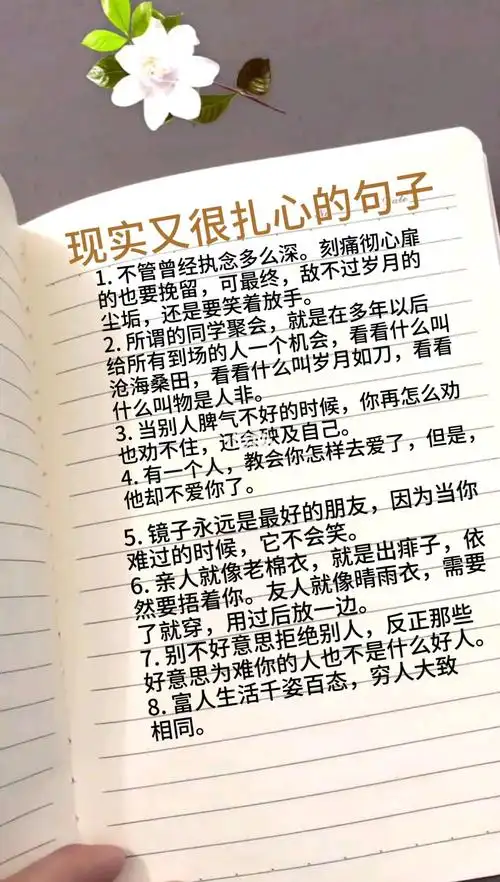 现实又很扎心的句子
1. 不管曾经执念多么深。刻痛彻心扉
的也要挽留，可最终，敌不过岁月的
尘垢，还是要笑着放手。
2. 所谓的同学聚会，就是在多年以后
给所有到场的人一个机会，看看什么叫
沧海桑田，看看什么叫岁月如刀，看看
什么叫物是人非。
3. 当别人脾气不好的时候，你再怎么劝
也劝不住，还会殃及自己。
4. 有一个人，教会你怎样去爱了，但是，
他却不爱你了。
5. 镜子永远是最好的朋友，因为当你
难过的时候，它不会笑。
6. 亲人就像老棉衣，就是出痱子，依
然要捂着你。友人就像晴雨衣，需要
了就穿，用过后放一边。
7. 别不好意思拒绝别人，反正那些
好意思为难你的人也不是什么好人。
8. 富人生活千姿百态，穷人大致
相同。